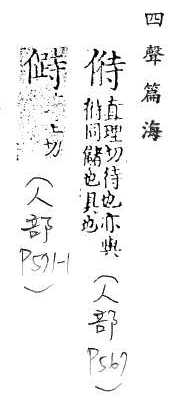 四聲篇海
偫
直理切待也亦與
同儲也具也
(人部
P567)
切
(人部
P571-1)